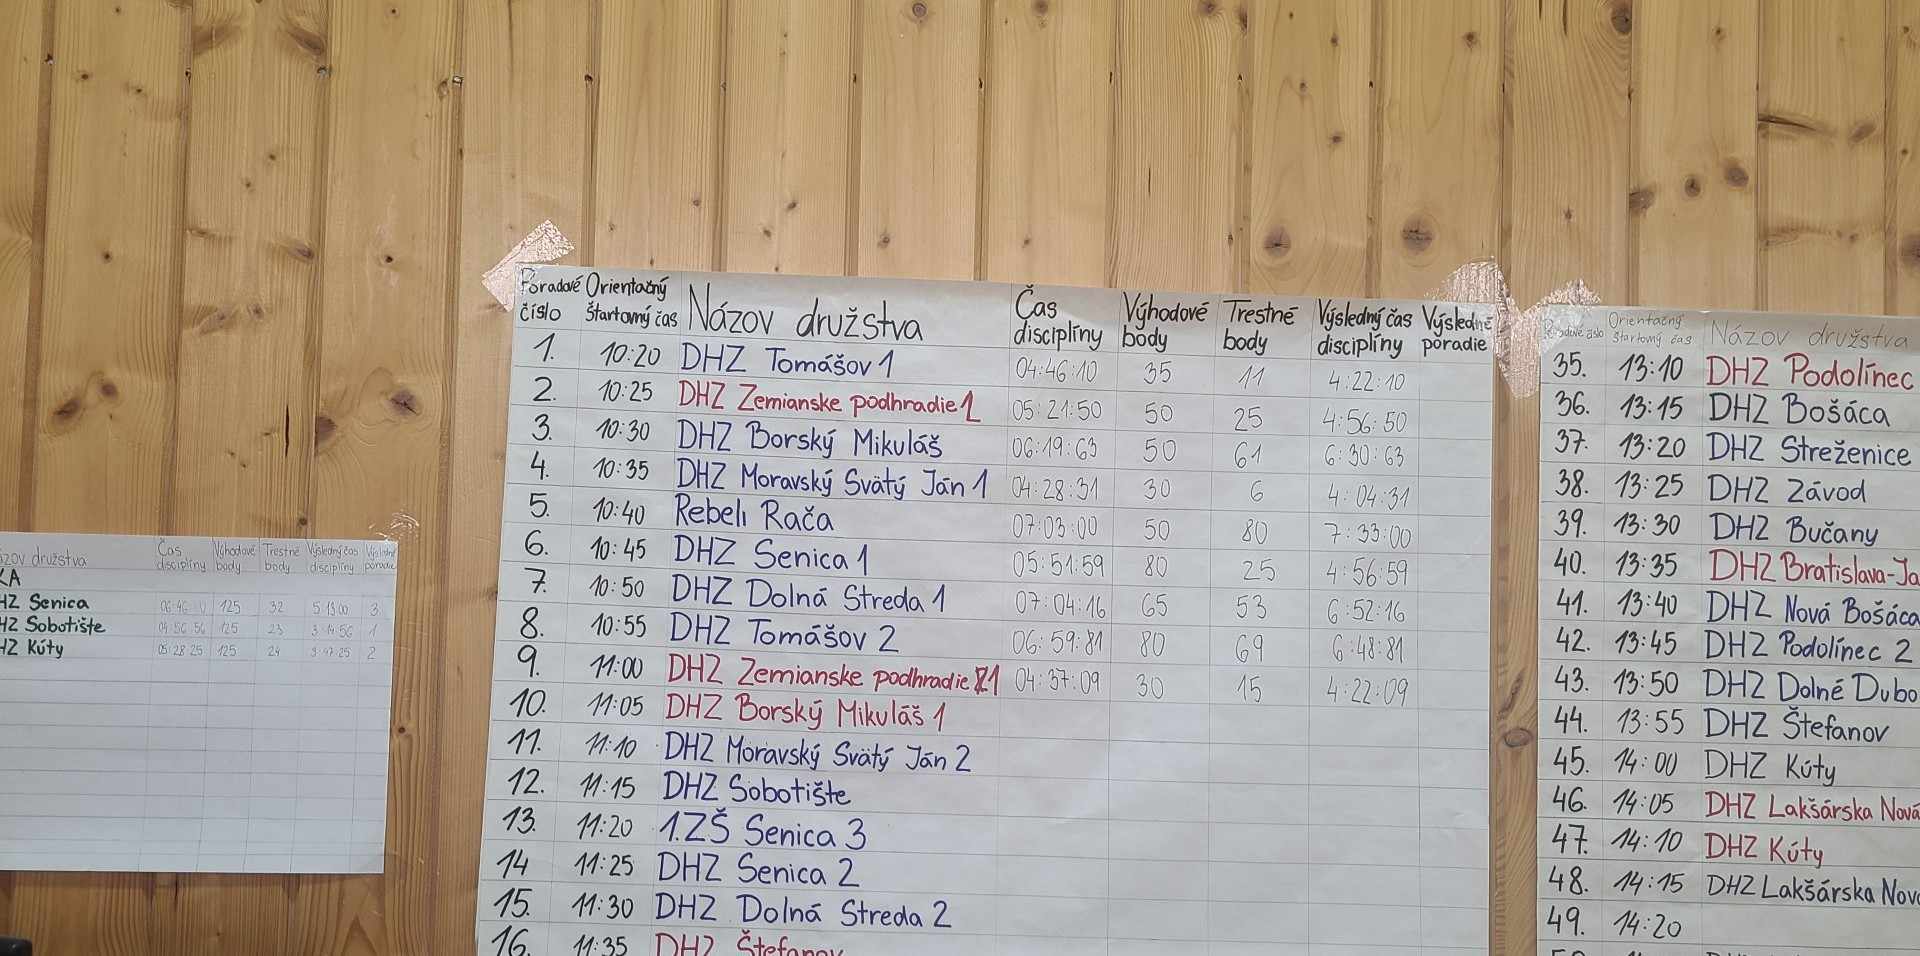 Názov družstva Čas disciplíny Výhodové body Trestné body Výsledný čas disciplíny Výsledné poradie
KA
HZ Senica 06 46 125 32 5 13 00 3
HZ Sobotište 04 56 56 125 23 3 14 56 1
HZ Kúty 05 28 25 125 24 3 47 25 2
Poradové číslo Orientačný štartovný čas Názov družstva Čas disciplíny Výhodové body Trestné body Výsledný čas disciplíny Výsledné poradie
1. 10:20 DHZ Tomášov 1 04:46:10 35 11 4:22:10
2. 10:25 DHZ Zemianske podhradie 2 05:21:50 50 25 4:56:50
3. 10:30 DHZ Borský Mikuláš 06:19:63 50 61 6:30:63
4. 10:35 DHZ Moravský Svätý Ján 1 04:28:31 30 6 4:04:31
5. 10:40 Rebeli Rača 07:03:00 50 80 7:33:00
6. 10:45 DHZ Senica 1 05:51:59 80 25 4:56:59
7. 10:50 DHZ Dolná Streda 1 07:04:16 65 53 6:52:16
8. 10:55 DHZ Tomášov 2 06:59:81 80 69 6:48:81
9. 11:00 DHZ Zemianske podhradie 1 04:37:09 30 15 4:22:09
10. 11:05 DHZ Borský Mikuláš 1
11. 11:10 DHZ Moravský Svätý Ján 2
12. 11:15 DHZ Sobotište
13. 11:20 1.ZŠ Senica 3
14 11:25 DHZ Senica 2
15. 11:30 DHZ Dolná Streda 2
16. 11:35 DHZ Štefanov
Poradové číslo Orientačný štartovný čas Názov družstva
35. 13:10 DHZ Podolínec
36. 13:15 DHZ Bošáca
37. 13:20 DHZ Streženice
38. 13:25 DHZ Závod
39. 13:30 DHZ Bučany
40. 13:35 DHZ Bratislava-Ja
41. 13:40 DHZ Nová Bošáca
42. 13:45 DHZ Podolínec 2
43. 13:50 DHZ Dolné Dubo
44. 13:55 DHZ Štefanov
45. 14:00 DHZ Kúty
46. 14:05 DHZ Lakšárska Nová
47. 14:10 DHZ Kúty
48. 14:15 DHZ Lakšárska Nová
49. 14:20